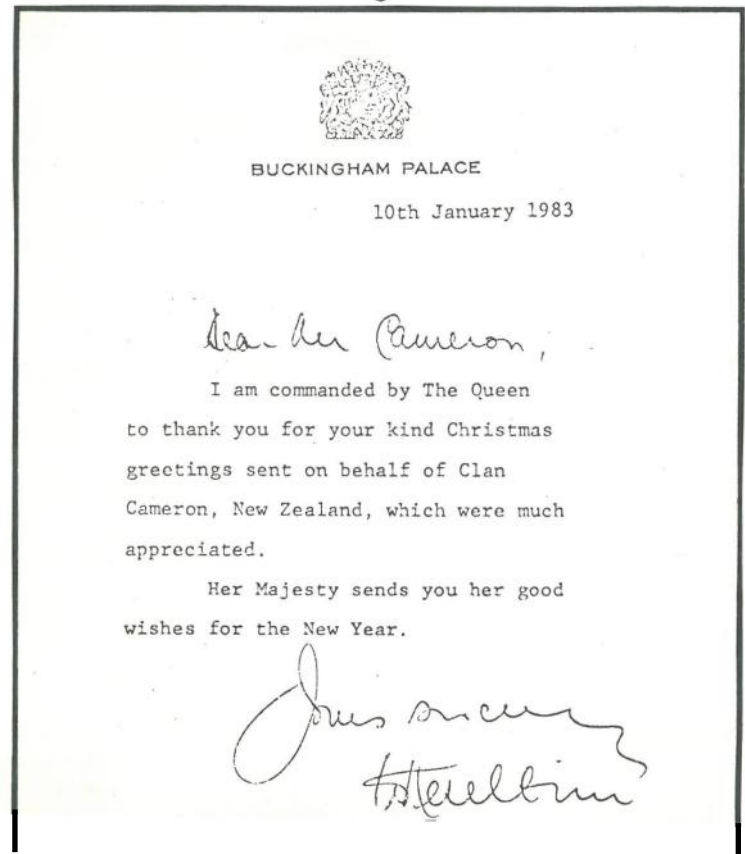 BUCKINGHAM PALACE
10th January 1983
Dear Mr Cameron,
I am commanded by The Queen
to thank you for your kind Christmas
greetings sent on behalf of Clan
Cameron, New Zealand, which were much
appreciated.
Her Majesty sends you her good
wishes for the New Year.
Yours sincerely